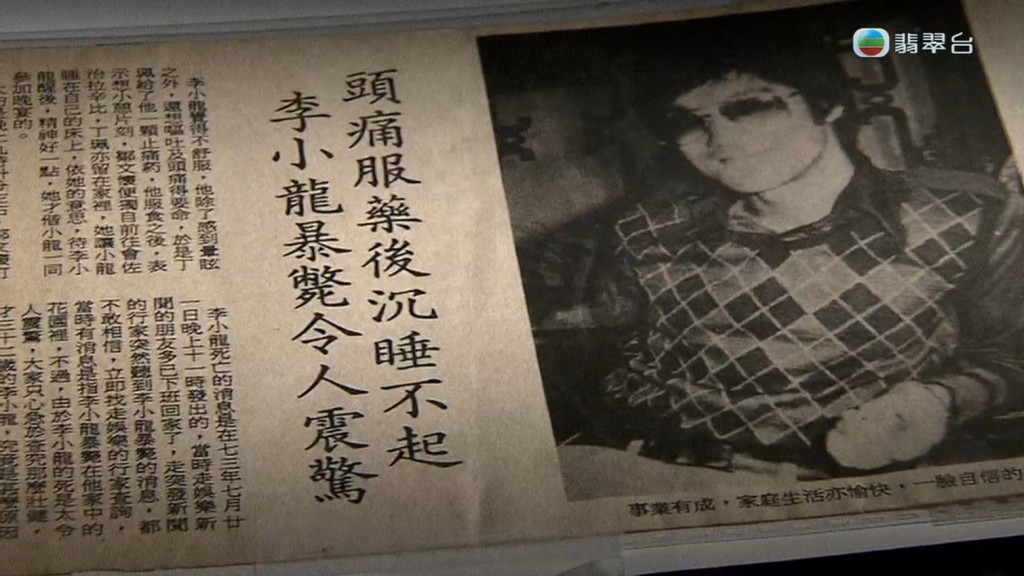 翡翠台
頭痛服藥後沉睡不起
李小龍暴斃令人震驚
李小龍覺得不舒服，他除了感到暈眩
之外，還想嘔吐及頭痛得要命，於是丁
珮給了他一顆止痛葯，他服食之後，表
示想小憩片刻，鄒文懷便獨自前往會佐
治拉辛比，丁珮亦留在家裡，她讓小龍
睡在自己的床上，依她的意思，待李小
龍醒後，精神好一點，她才偕小龍一同
參加晚宴的。
李小龍死亡的消息是在七三年七月廿
一日晚上十一時發出的，當時走娛樂新
聞的朋友多已下班回家了，走突發新聞
的行家突然聽到李小龍暴斃的消息，都
不敢相信，立即找走娛樂的行家查詢，
當時有消息是指李小龍暴斃在他家中的
花園裡，不過，由於李小龍的死是太令
人震驚，大家只
歲的李小龍，
事業有成，家庭生活亦愉快，一臉自信的